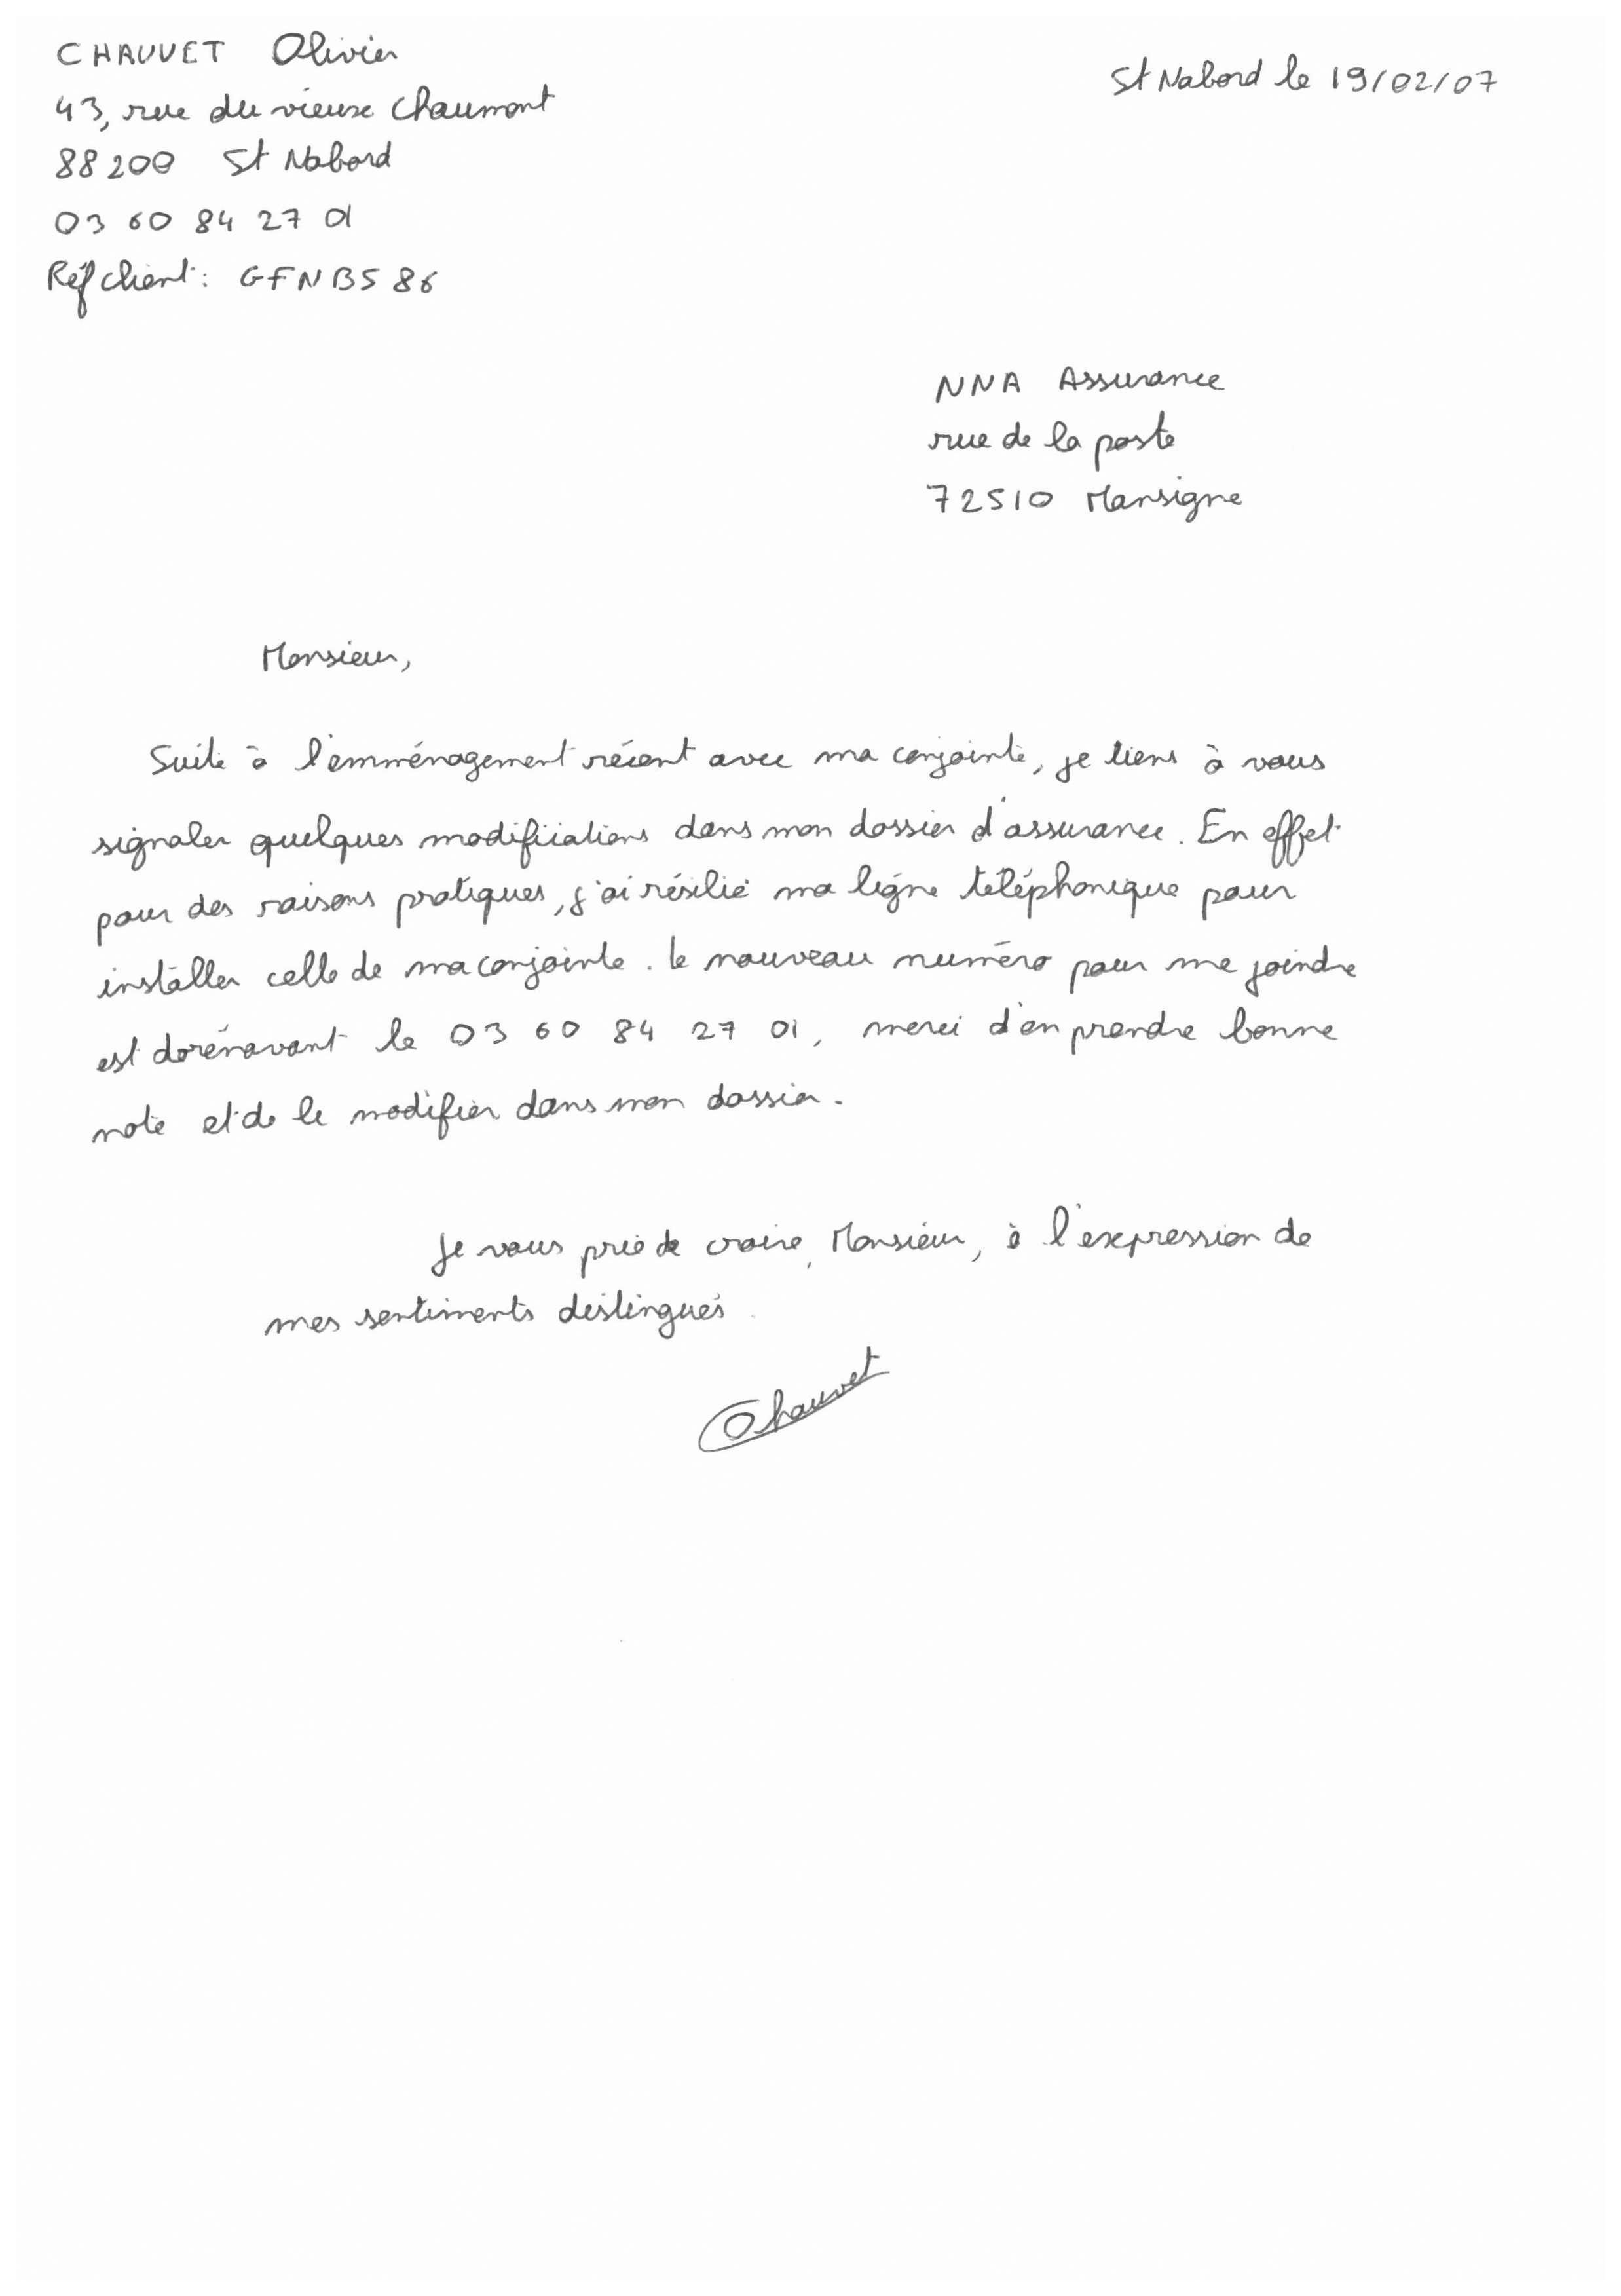 CHAUVET Olivier
43, rue du vieux Chaumont
88200 St Nabord
03 60 84 27 01
Réf client : GFNBS 86
St Nabord le 19/02/07
NNA Assurance
rue de la poste
72510 Mansigne
Monsieur,
Suite à l'emménagement récent avec ma conjointe, je tiens à vous
signaler quelques modifications dans mon dossier d'assurance. En effet
pour des raisons pratiques, j'ai résilié ma ligne téléphonique pour
installer celle de ma conjointe. Le nouveau numéro pour me joindre
est dorénavant le 03 60 84 27 01, merci d'en prendre bonne
note et de le modifier dans mon dossier.
Je vous prie de croire, Monsieur, à l'expression de
mes sentiments distingués.
Chauvet